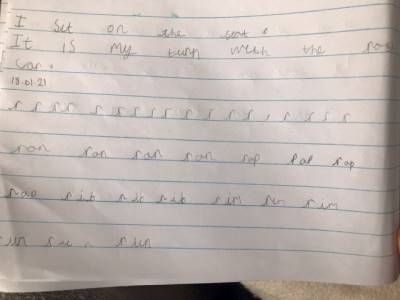 I sit on the seat.
It is my turn with the
car.
18.01.21
r r r r r r r r r r r r r r r r
ran ran ran ran rap rap rap
rap rib rib rib rim rim rim
run run run